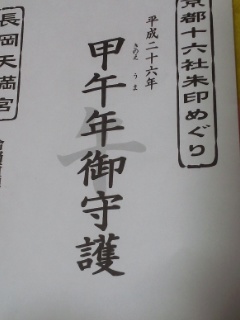 京都十六社朱印めぐり
平成二十六年
甲午年御守護
きのえ うま
午
長岡天満宮